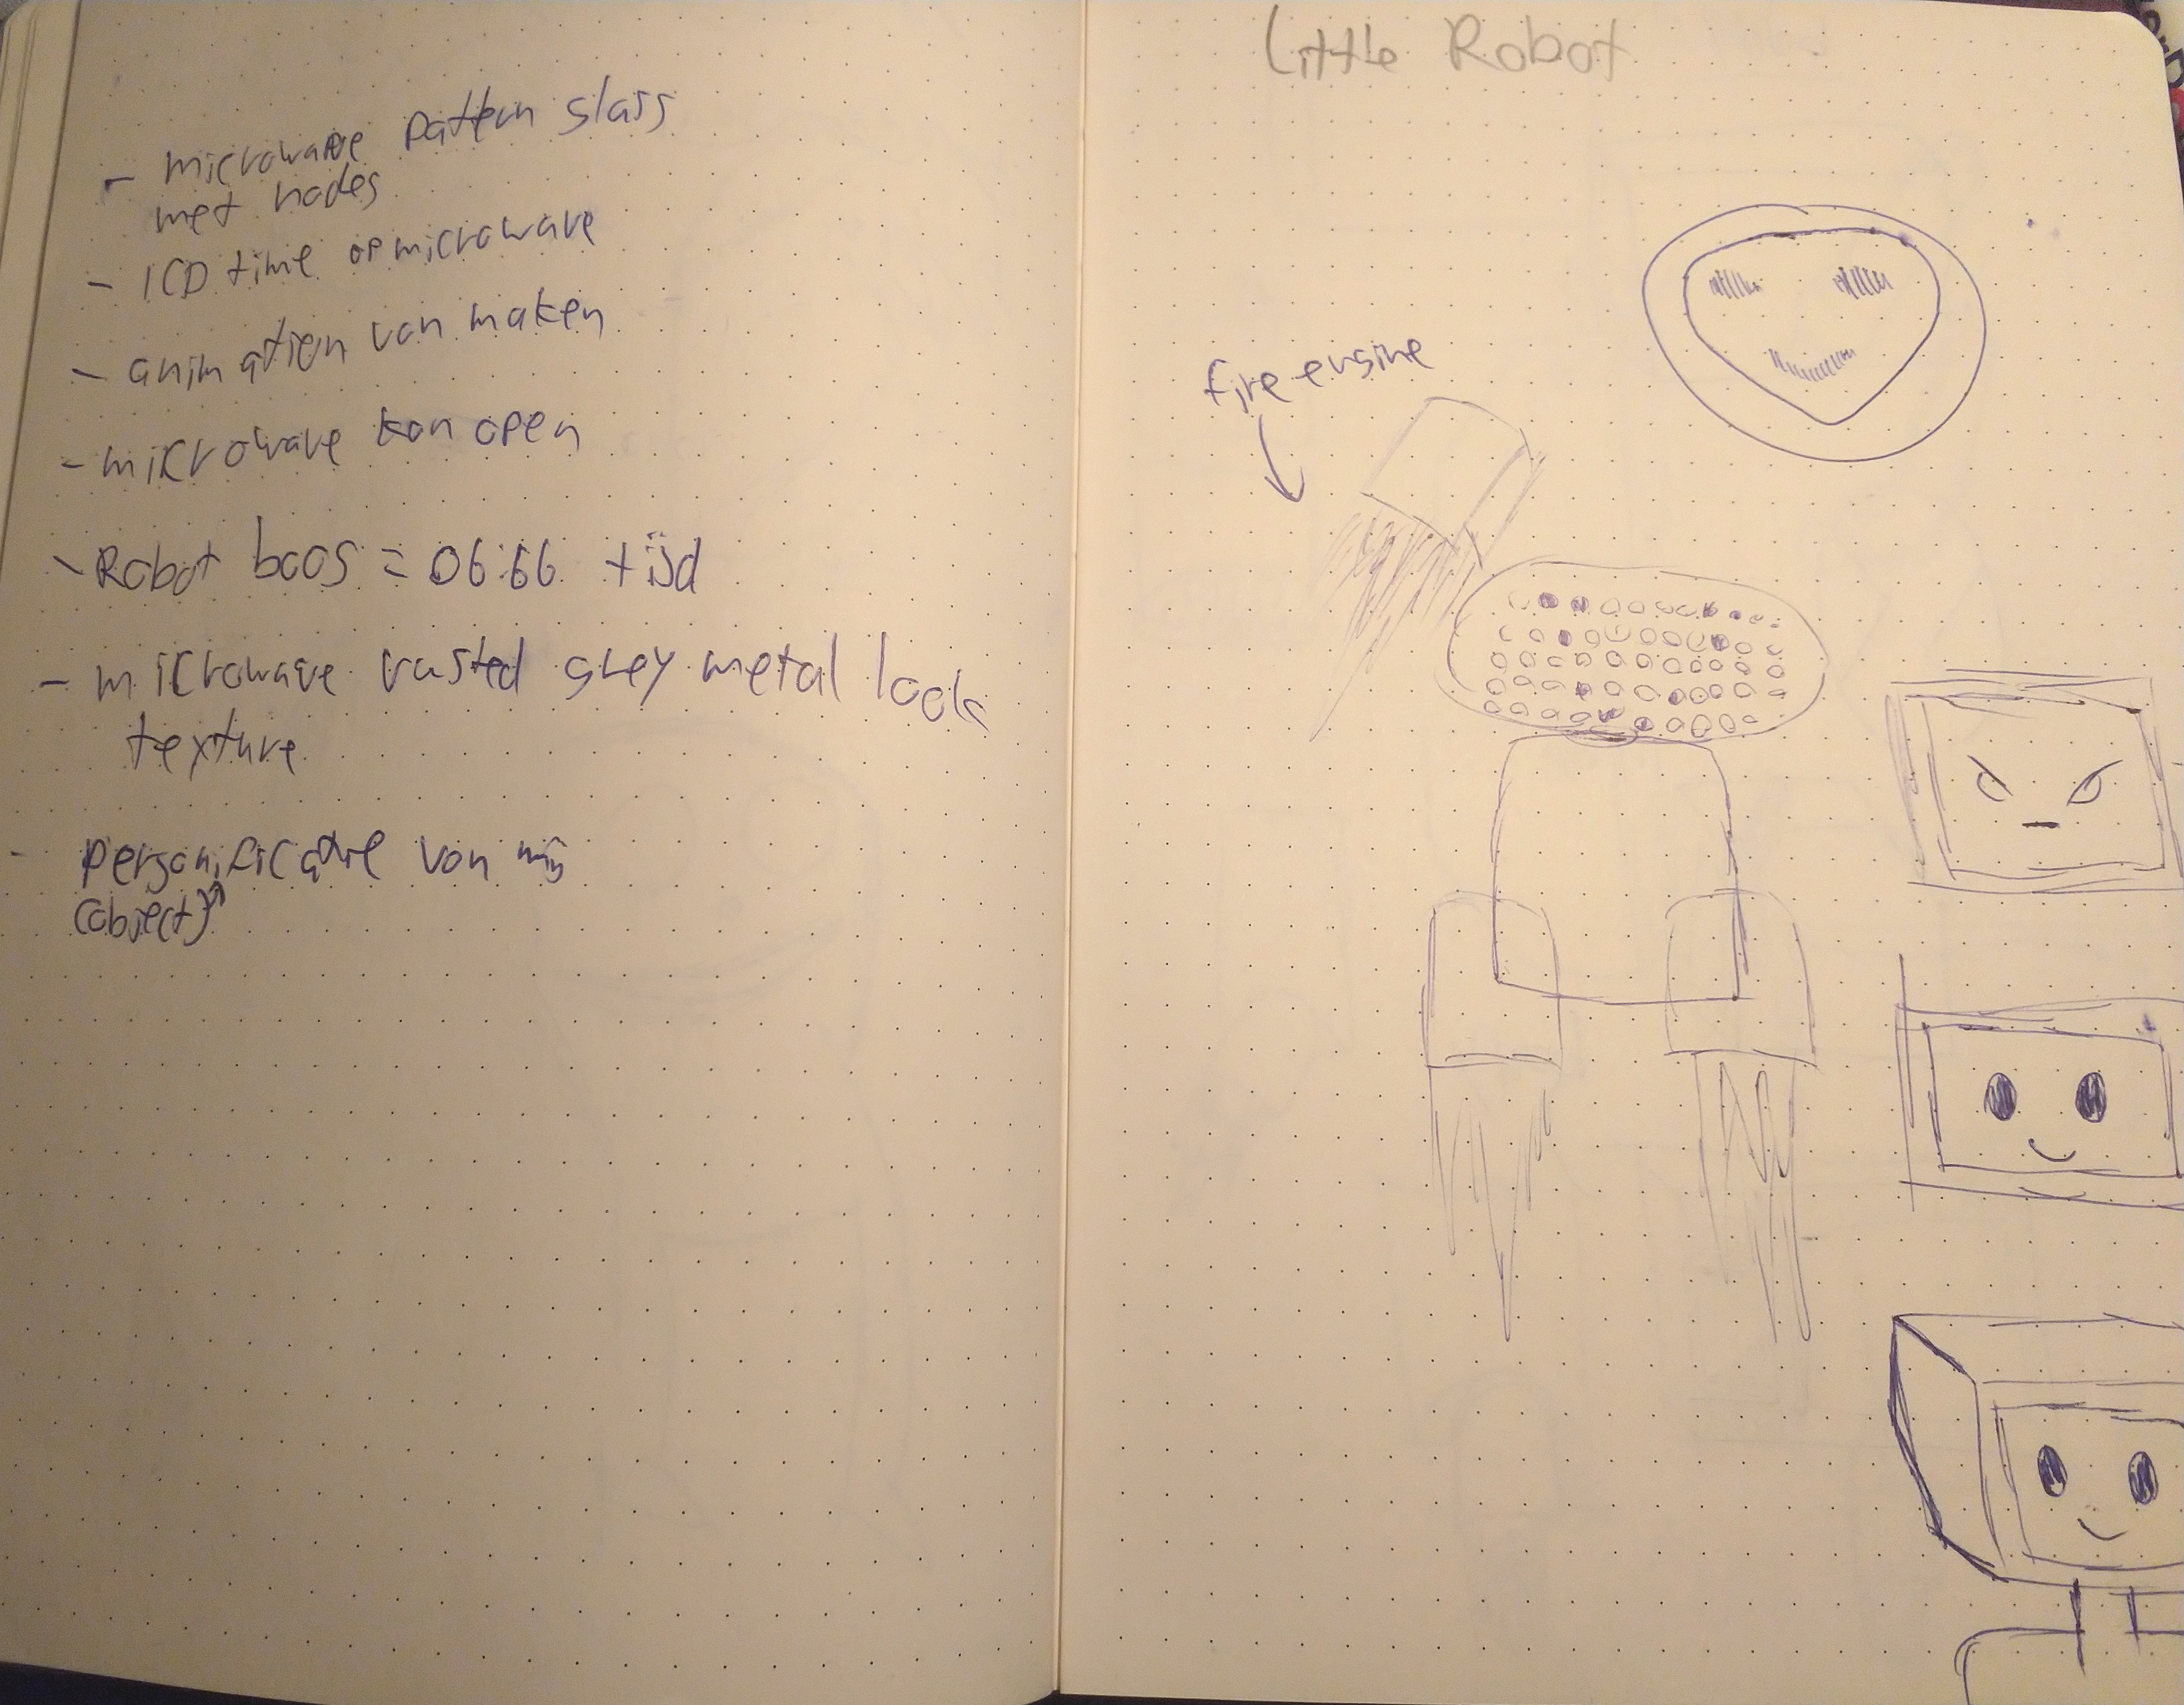 - microwave pattern glass
met nodes
- LCD time op microwave
- animation van maken
- microwave kan open
- Robot boos = 06:66 tijd
- microwave rusted grey metal look
texture
- personificatie van mijn
(object)
Little Robot
fire engine